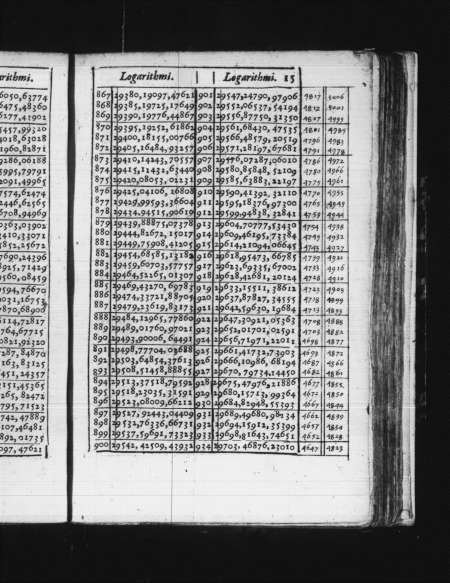 arithmi.
6050,63774
6475,48360
6277,43902
5457,99320
4018,63028
1960,82871
9286,06188
5995,79791
2091,49965
7574,62474
2446,61565
6708,94969
0363,03902
3410,33071
5852,25671
7690,24396
925,71429
9560,08459
9594,76670
9031,16753
7870,68900
6114,72817
764,67715
0821,92320
7287,84870
163,83325
9451,24357
3151,45365
265,82472
795,71523
742,47889
107,46481
892,01735
097,47621
Logarithmi. | | Logarithmi. 15
867 29380,19097,47621 901 29547,24790,97906 4817 5006
868 29385,19725,17649 902 29552,06537,54194 4812 5001
869 29390,19776,44867 903 29556,87750,31350 4807 4995
870 29395,19252,61862 904 29561,68430,47535 4801 4989
871 29400,18155,00766 905 29566,48579,20519 4796 4983
872 29405,16484,93257 906 29571,28197,67681 4791 4978
873 29410,14243,70557 907 29576,07287,06010 4786 4972
874 29415,11432,63440 908 29580,85848,52109 4780 4966
875 29420,08053,02231 909 29585,63883,22197 4775 4961
876 29425,04106,16808 910 29590,41392,32110 4770 4955
877 29429,99593,36604 911 29595,18376,97300 4765 4949
878 29434,94515,90619 912 29599,94838,32841 4759 4944
879 29439,88875,07378 913 29604,70777,53430 4754 4938
880 29444,82672,15017 914 29609,46195,73384 4749 4932
881 29449,75908,41205 915 29614,21094,06645 4743 4927
882 29454,68585,13182 916 29618,95473,66785 4739 4921
883 29459,60703,57757 917 29623,69335,67002 4733 4916
884 29464,52265,01307 918 29628,42681,20124 4728 4910
885 29469,43270,69783 919 29633,15511,38612 4723 4905
886 29474,33721,88705 920 29637,87827,34555 4718 4899
887 29479,23619,83173 921 29642,59630,19684 4713 4893
888 29484,12965,77860 922 29647,30921,05363 4708 4888
889 29489,01760,97021 923 29652,01701,02591 4703 4882
890 29493,90006,64491 924 29656,71971,22011 4698 4877
891 29498,77704,03688 925 29661,41732,73903 4693 4872
892 29503,64854,37613 926 29666,10986,68194 4687 4866
893 29508,51458,88855 927 29670,79734,14450 4682 4861
894 29513,37518,79592 928 29675,47976,21886 4677 4855
895 29518,23035,31591 929 29680,15713,99364 4672 4850
896 29523,08009,66212 930 29684,82948,55393 4667 4844
897 29527,92443,04409 931 29689,49680,98134 4662 4839
898 29532,76336,66731 932 29694,15912,35399 4657 4834
899 29537,59691,73323 933 29698,81643,74651 4652 4828
900 29542,42509,43932 934 29703,46876,23010 4647 4823